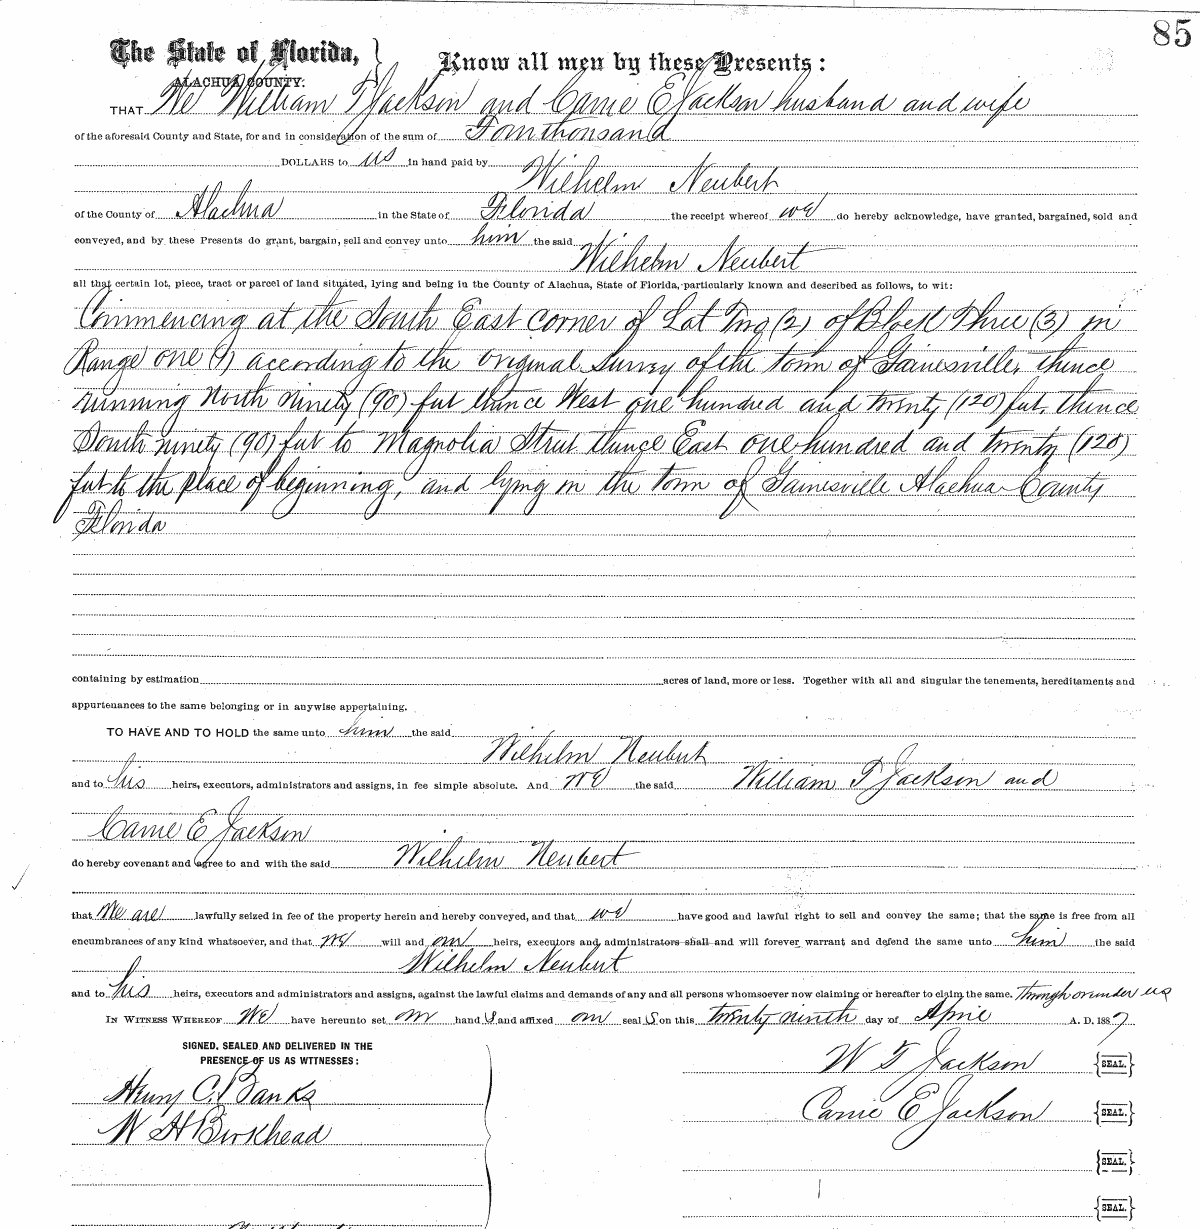 85
The State of Florida, } Know all men by these Presents:
ALACHUA COUNTY.
THAT We William T Jackson and Carrie E Jackson husband and wife
of the aforesaid County and State, for and in consideration of the sum of Four thousand
DOLLARS to us in hand paid by
Wilhelm Neubert
of the County of Alachua in the State of Florida the receipt whereof we do hereby acknowledge, have granted, bargained, sold and
conveyed, and by these Presents do grant, bargain, sell and convey unto him the said
Wilhelm Neubert
all that certain lot, piece, tract or parcel of land situated, lying and being in the County of Alachua, State of Florida, particularly known and described as follows, to wit:
Commencing at the South East corner of Lot Two (2) of Block Three (3) in
Range one (1) according to the original Survey of the town of Gainesville, thence
running North ninety (90) feet thence West one hundred and twenty (120) feet, thence
South ninety (90) feet to Magnolia Street thence East one hundred and twenty (120)
feet to the place of beginning, and lying in the town of Gainesville Alachua County
Florida
containing by estimation acres of land, more or less. Together with all and singular the tenements, hereditaments and
appurtenances to the same belonging or in anywise appertaining.
TO HAVE AND TO HOLD the same unto him the said
Wilhelm Neubert
and to his heirs, executors, administrators and assigns, in fee simple absolute. And we the said William T Jackson and
Carrie E Jackson
do hereby covenant and agree to and with the said Wilhelm Neubert
that We are lawfully seized in fee of the property herein and hereby conveyed, and that we have good and lawful right to sell and convey the same; that the same is free from all
encumbrances of any kind whatsoever, and that we will and our heirs, executors and administrators shall and will forever warrant and defend the same unto him the said
Wilhelm Neubert
and to his heirs, executors and administrators and assigns, against the lawful claims and demands of any and all persons whomsoever now claiming or hereafter to claim the same. through or under us
IN WITNESS WHEREOF We have hereunto set our hand S and affixed our seal S on this twenty ninth day of April A. D. 1887
SIGNED, SEALED AND DELIVERED IN THE
PRESENCE OF US AS WITNESSES:
W T Jackson {SEAL.}
Henry C. Banks
Carrie E Jackson {SEAL.}
W H Birkhead
{SEAL.}
{SEAL.}